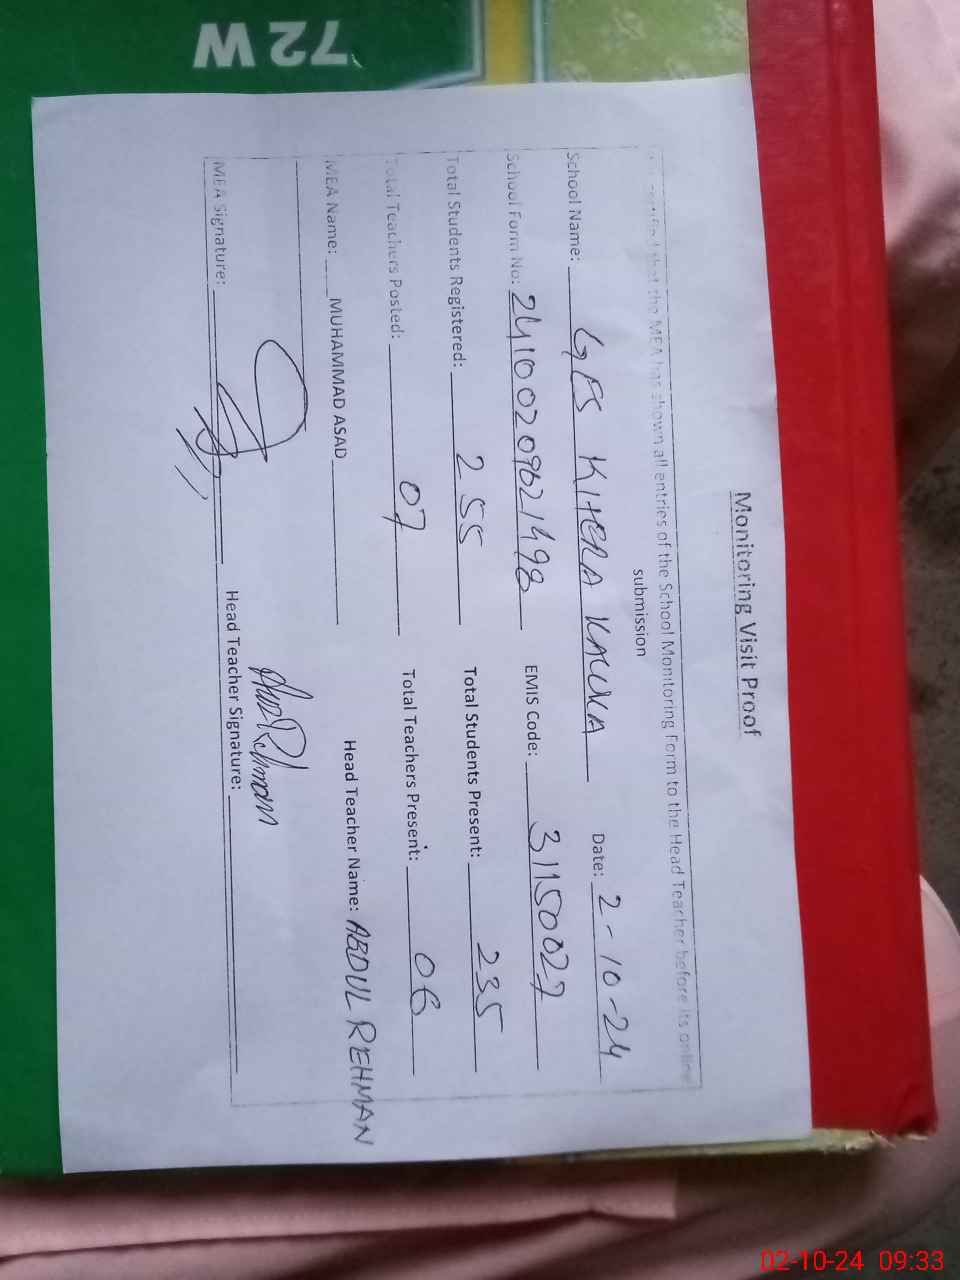 72 W
Monitoring Visit Proof
that the MEA has shown all entries of the School Monitoring Form to the Head Teacher before its online
submission
School Name: GES KHERA KALUNA Date: 2-10-24
School Form No: 24100209621498 EMIS Code: 3115027
Total Students Registered: 255 Total Students Present: 235
Total Teachers Posted: 07 Total Teachers Present: 06
MEA Name: MUHAMMAD ASAD Head Teacher Name: ABDUL REHMAN
MEA Signature: Head Teacher Signature: Abdul Rehman
02-10-24 09:33